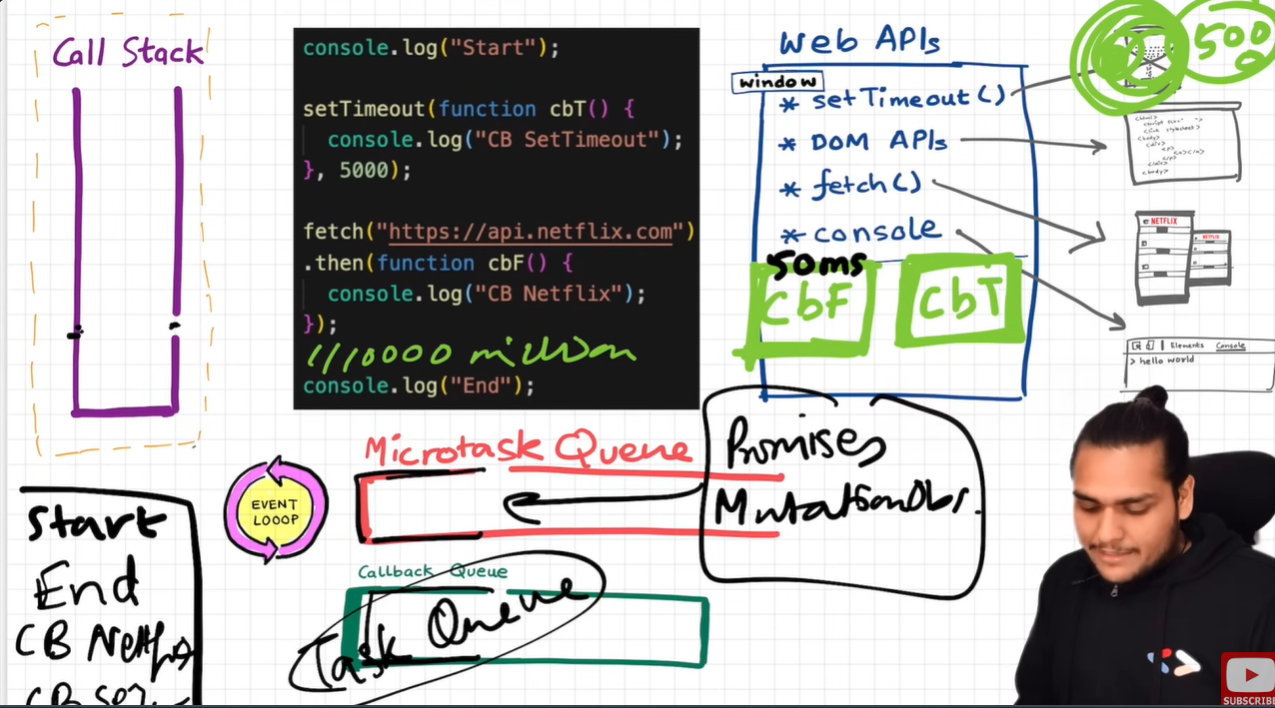 Call Stack
console.log("Start");
setTimeout(function cbT() {
console.log("CB SetTimeout");
}, 5000);
fetch("https://api.netflix.com")
.then(function cbF() {
console.log("CB Netflix");
});
10000 million
console.log("End");
Web APIs
window
* setTimeout()
* DOM APIs
* fetch()
* console
50ms
cbF
cbT
500
<html>
<body>
<div>
NETFLIX
NETFLIX
Elements Console
> hello world
Microtask Queue
Promises
EVENT
LOOOP
Callback Queue
Task Queue
Start
End
CB
SUBSCRIBE